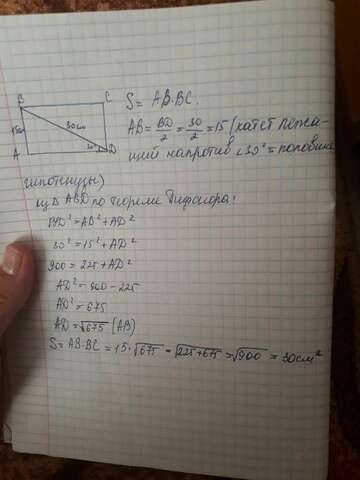 B C
15см 30см
A 30° D
S = AB·BC.
AB = BD/2 = 30/2 = 15 (катет лежа-
щий напротив ∠30° = половине
гипотенузы)
Из Δ ABD по теореме Пифагора:
BD² = AB² + AD²
30² = 15² + AD²
900 = 225 + AD²
AD² = 900 - 225
AD² = 675
AD = √675 (AB)
S = AB·BC = 15·√675 = √225+675 = √900 = 30см²